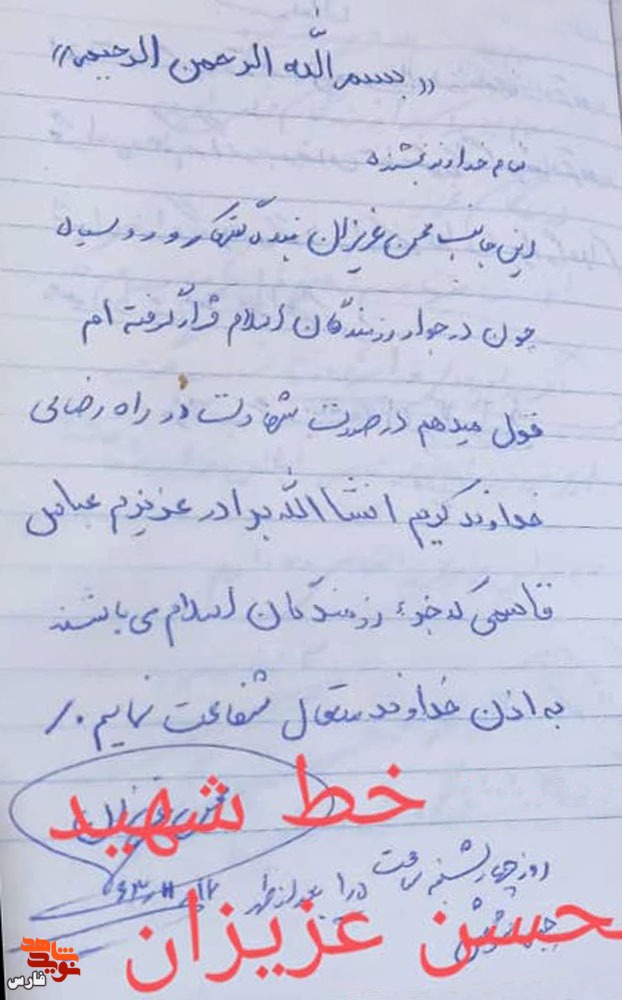 «بسم الله الرحمن الرحیم»
بنام خداوند بخشنده
این جانب محسن عزیزان بنده گنهکار و رو سیاه
چون در جوار رزمندگان اسلام قرار گرفته ام
قول میدهم در صورت شهادت در راه رضای
خداوند کریم انشاالله برادر عزیزم عباس
قاسمی که جزء رزمندگان اسلام می باشند
به اذن خداوند متعال شفاعت نمایم ./
محسن عزیزان
خط شهید
روز چهارشنبه ساعت بعد از ظهر
محسن عزیزان
شاهد
نوید
فارس